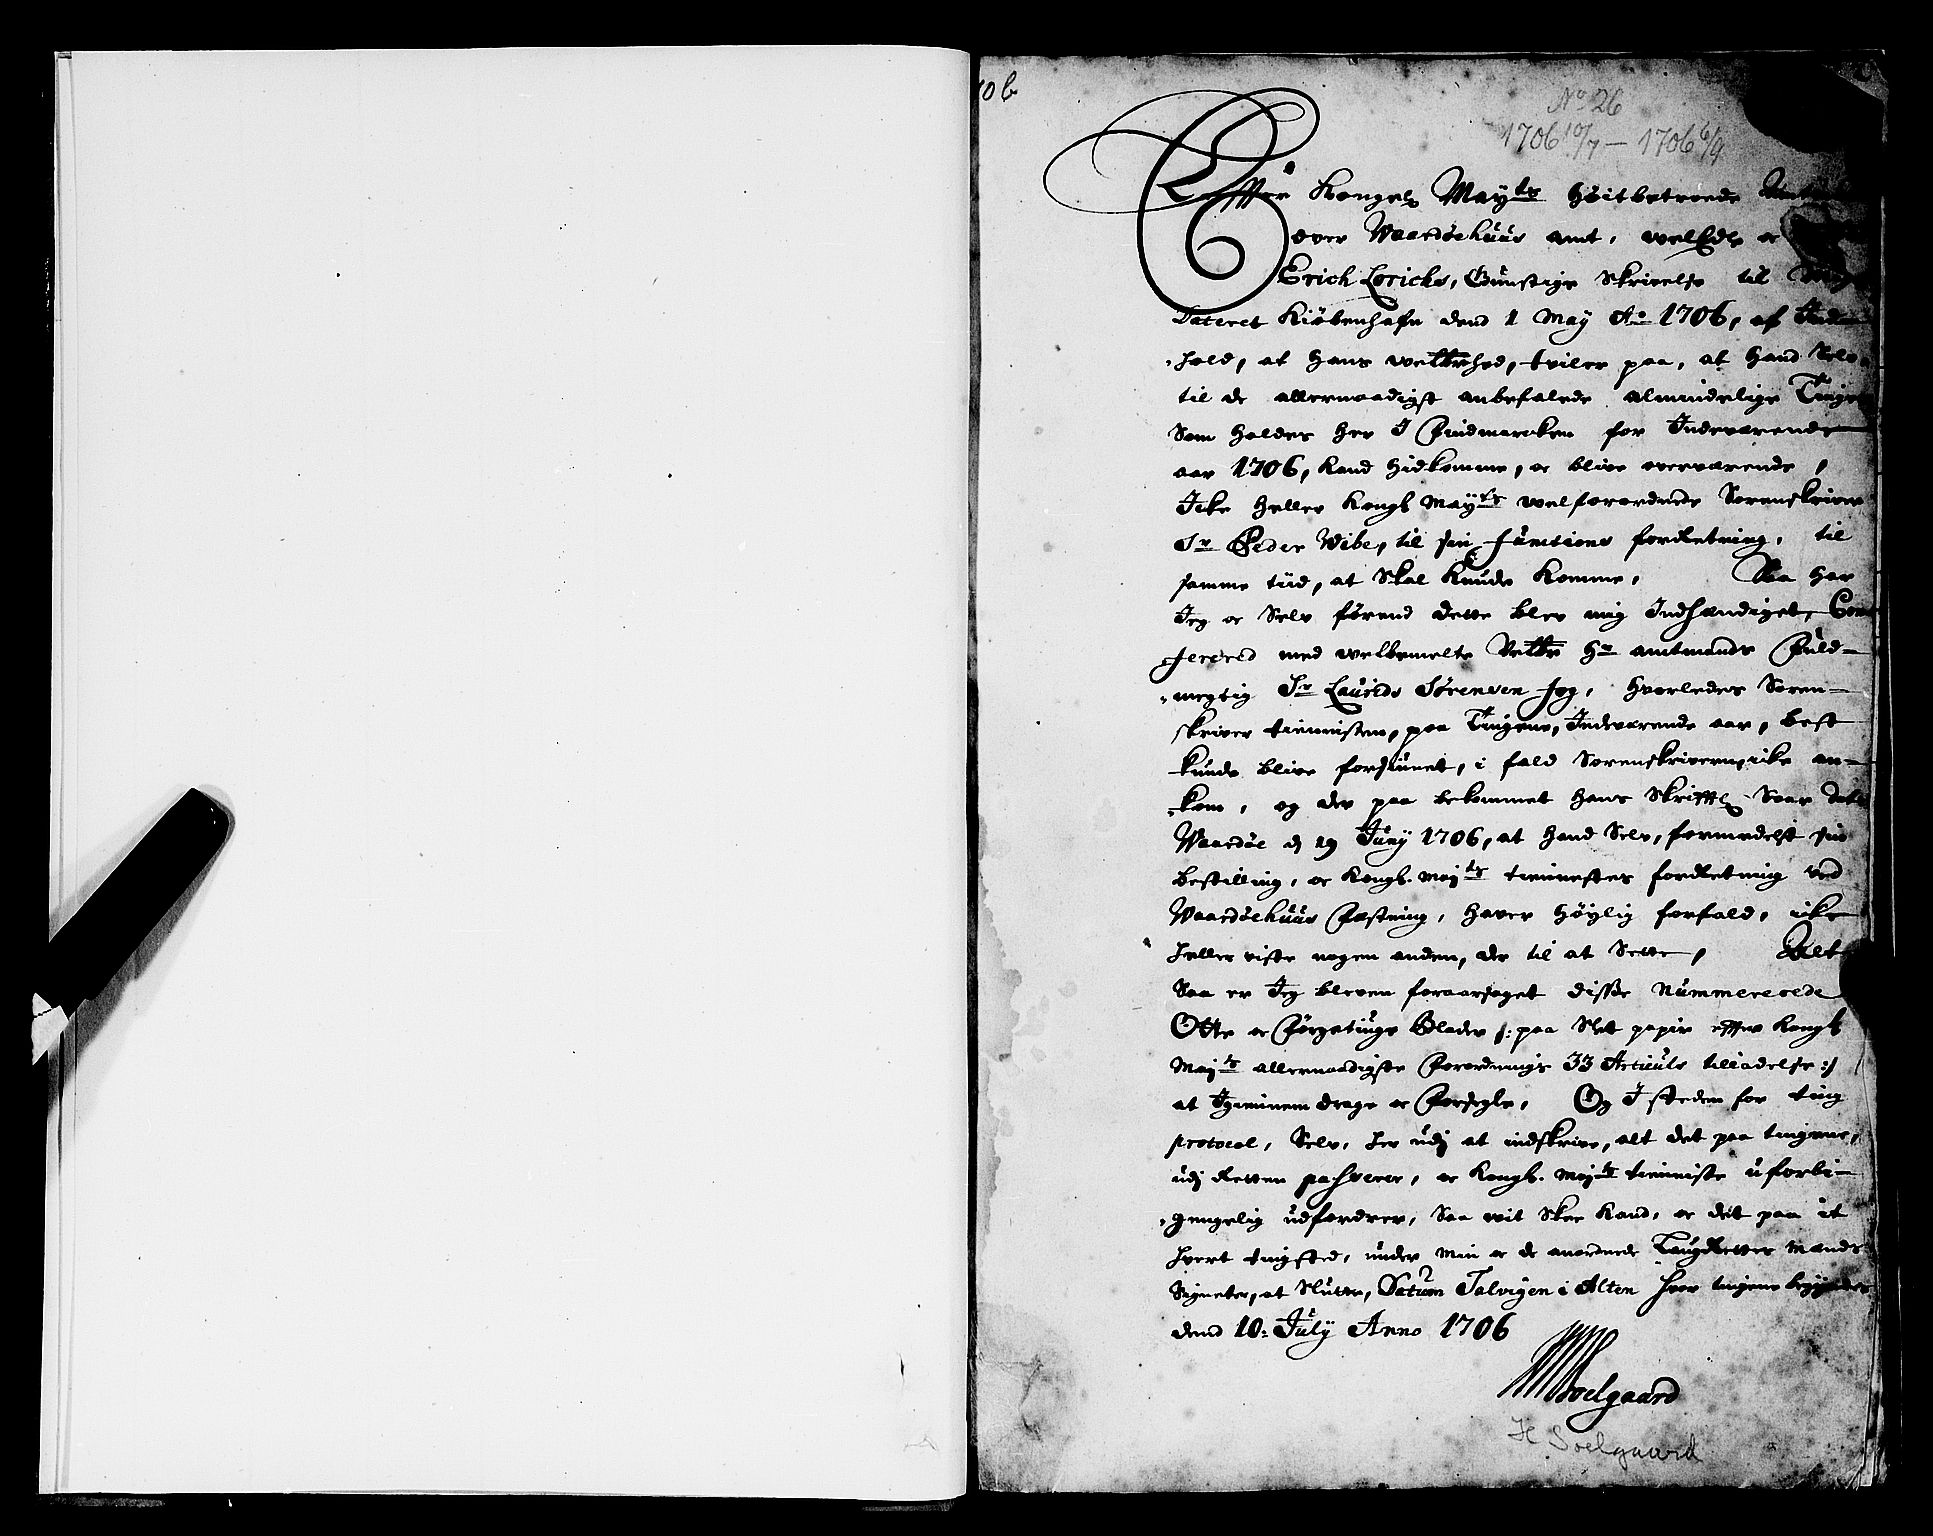 No 26
1706 10/7 — 1706 6/9
Effter Kongel Mayts Høitbetroede
over Waardøehuus amt, welEdle oc
Erich Lorichs, Gunstige Skrivelse til
Dateret Kiøbenhafn dend 1 May Ao 1706, af Ind-
hold, at hans welbr:hed, tviler paa, at hand Selv
til de allernaadigst anbefalede almindelige Tinge
Som holdes her I Findmarcken for Indeværende
aar 1706, kand hidkomme, oc blive overværende,
Icke heller Kongl Mayts welforordnede Sorenskriver
Sr Peder Wibe, til sin functions forRetning, til
samme tiid, at Skal kunde komme, Saa har
Jeg oc Selv førend dette blev mig Indhændiget, Con
fererid med welbemelte hr amtmands Fuld-
megtig Sr Laurids Sørensen Jog, hvorledes Soren-
skriver tienisten, paa Tingene, Indeværende aar, best
kunde blive forsiunet, i fald Sorenskriveren icke an-
kom, og der paa bekommet hans Skrifftl Svar
Waardøe d 19 Juny 1706, at hand Selv, formedelst sin
bestilling, oc Kongl. Majts tienistes forRetning ved
Waardøehuus Fæstning, haver høylig forfald, icke
heller viste nogen anden, der til at Sette, Alt
Saa er Jeg bleven foraarsaget disse Nummererede
Otte oc Førgetiuge Blader /: paa Slet papir effter Kongl
Majts allernaadigste Forordnings 33 Articuls tilladelse :/
at Igiennemdrage oc Forsegle, Og I steden for ting
protocol, Selv, her udj at indskrive, alt det paa tingene,
udj Retten passerer, oc Kongl. Majts tieniste uforbi-
gengelig udfordrer, Saa vit Skee kand, oc det paa it
hvert tingsted, under min oc de anordnede LaugRettes mænds
Signeter, at Slutte, Datum Talvigen i Alten hvor tingene begyndes
dend 10: July Anno 1706
Soelgaard
H Soelgaard